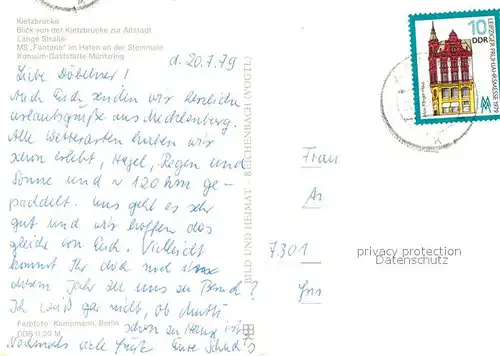 Kietzbrücke
Blick von der Kietzbrücke zur Altstadt
Lange Straße
MS "Fontane" im Hafen an der Steinmole
Konsum-Gaststätte Müritzring
d. 20.7.79
Liebe Döbelner!
Auch Euch senden wir herzliche
Urlaubsgrüße aus Mecklenburg.
Alle Wetterarten haben wir
schon erlebt, Hagel, Regen und
Sonne und ~ 120 km ge-
paddelt. Uns geht es sehr
gut und wir hoffen das
gleiche von Euch. Vielleicht
kommt Ihr doch noch
diesem Jahr zu uns zu Besuch?
Ich weiß gar nicht, ob
schon zu Hause ist.
Nochmals viele Grüße Eure
Farbfoto: Kampmann, Berlin
DDR 0,20 M
BILD UND HEIMAT REICHENBACH (VOGTL)
10
DDR
LEIPZIGER FRÜHJAHRSMESSE 1979
MM
Frau
7301
privacy protection
Datenschutz